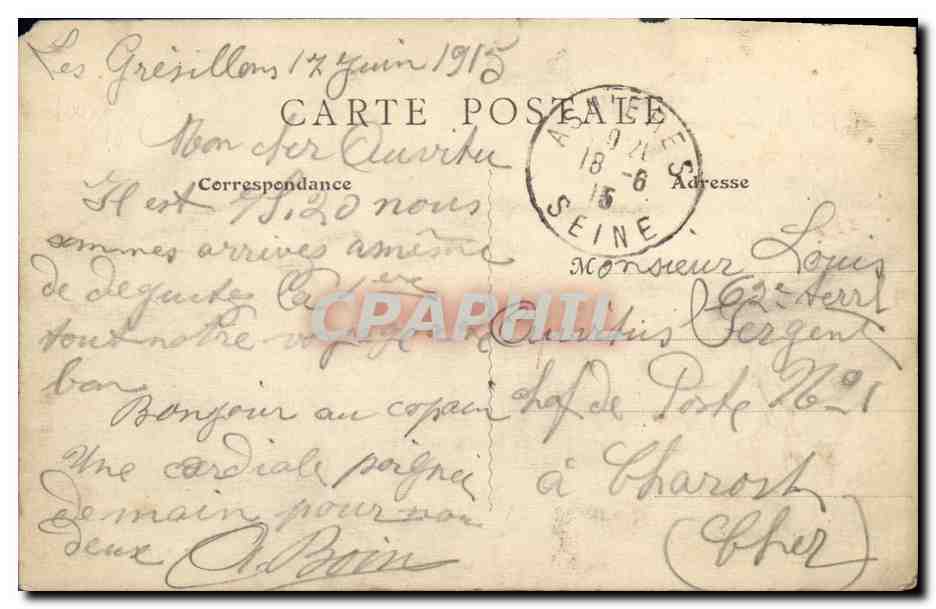 Les Grésillons 17 Juin 1915
CARTE POSTALE
Mon cher Auvitu
Correspondance
Il est 15.20 nous
sommes arrivés a même
de deguster La 1ère
tout notre voyage
bon
Bonjour au copain
Une cordiale poignée
de main pour vous
deux A. Boin
ASNIERES
18 -6
15
SEINE
Adresse
Monsieur Louis
62e terrl
Sergent
chef de Poste No 1
à Charost
(Cher)
CPARHIL